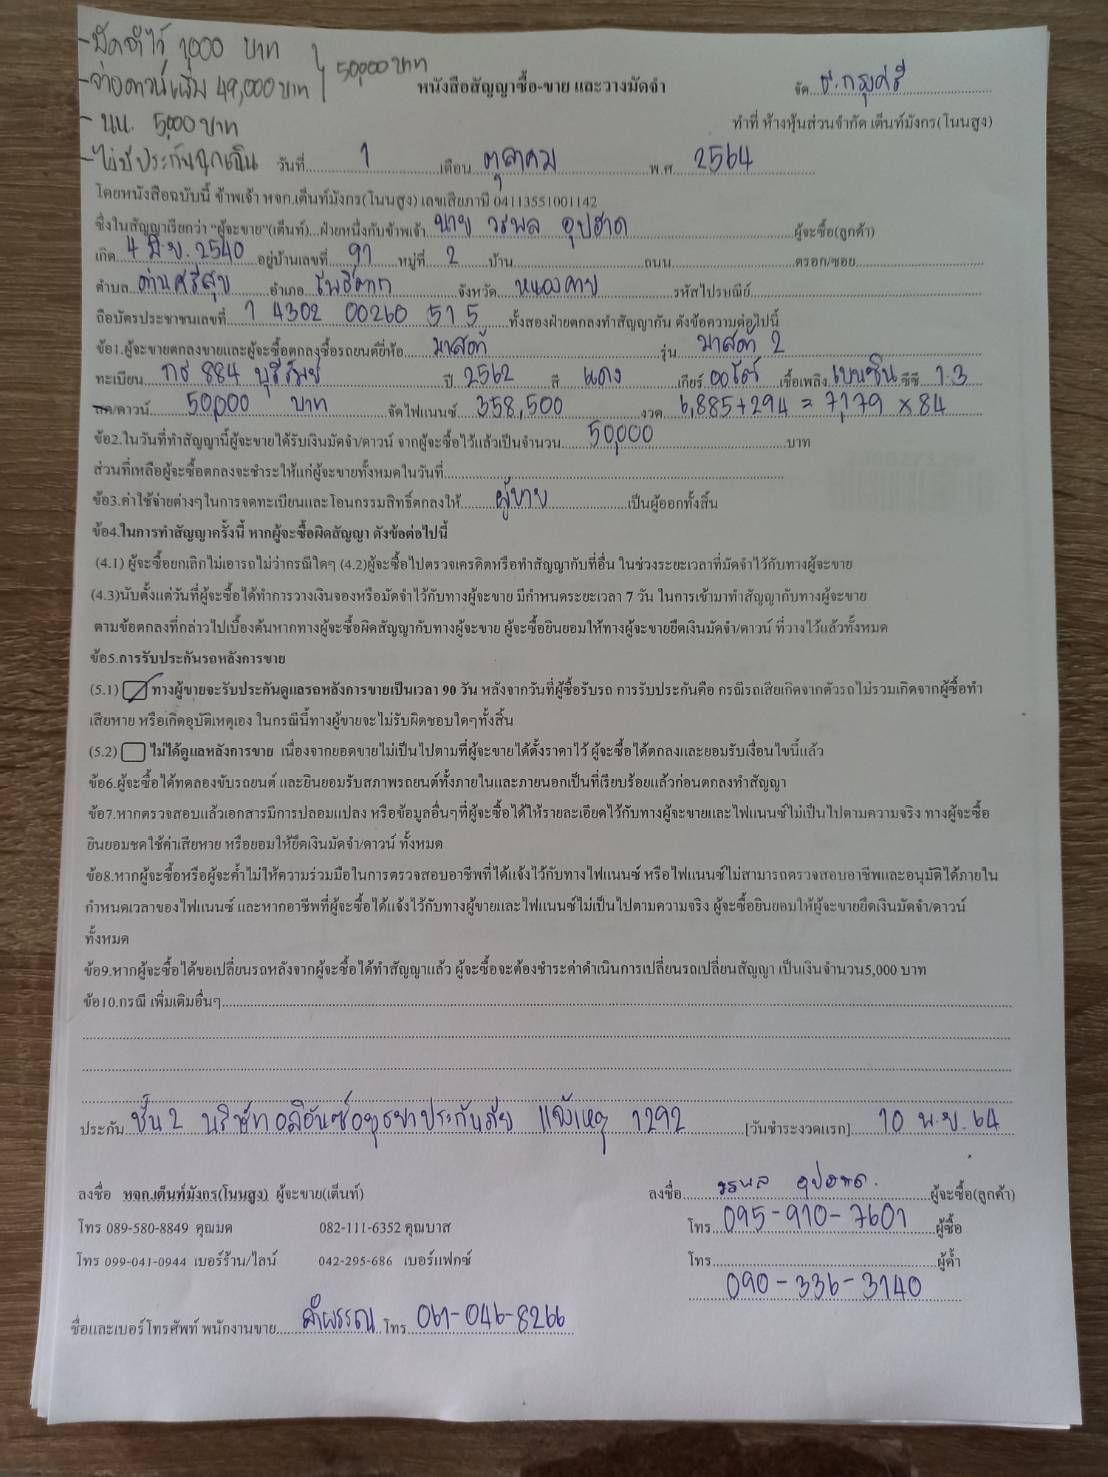 - มัดจำไว้ 1000 บาท
- จ่ายดาวน์เพิ่ม 49,000 บาท
50,000 บาท
- นน. 5,000 บาท
- ไม่มีประกันฉุกเฉิน
หนังสือสัญญาซื้อ-ขาย และวางมัดจำ
จัด ธ.กรุงศรี
ทำที่ ห้างหุ้นส่วนจำกัด เต็นท์มังกร(โนนสูง)
วันที่ 1 เดือน ตุลาคม พ.ศ. 2564
โดยหนังสือฉบับนี้ ข้าพเจ้า หจก.เต็นท์มังกร(โนนสูง) เลขเสียภาษี 04113551001142
ซึ่งในสัญญาเรียกว่า "ผู้จะขาย"(เต็นท์)...ฝ่ายหนึ่งกับข้าพเจ้า นาย วรพล อุปฮาด ผู้จะซื้อ(ลูกค้า)
เกิด 4 มิ.ย. 2540 อยู่บ้านเลขที่ 97 หมู่ที่ 2 บ้าน ถนน ตรอก/ซอย
ตำบล ด่านศรีสุข อำเภอ โพธิ์ตาก จังหวัด หนองคาย รหัสไปรษณีย์
ถือบัตรประชาชนเลขที่ 1 4302 00260 51 5 ทั้งสองฝ่ายตกลงทำสัญญากัน ดังข้อความต่อไปนี้
ข้อ1.ผู้จะขายตกลงขายและผู้จะซื้อตกลงซื้อรถยนต์ยี่ห้อ มาสด้า รุ่น มาสด้า 2
ทะเบียน กธ 884 บุรีรัมย์ ปี 2562 สี แดง เกียร์ ออโต้ เชื้อเพลิง เบนซิน ซีซี 1.3
สด/ดาวน์ 50,000 บาท จัดไฟแนนซ์ 358,500 งวด 6,885+294 = 7,179 x 84
ข้อ2.ในวันที่ทำสัญญานี้ผู้จะขายได้รับเงินมัดจำ/ดาวน์ จากผู้จะซื้อไว้แล้วเป็นจำนวน 50,000 บาท
ส่วนที่เหลือผู้จะซื้อตกลงจะชำระให้แก่ผู้จะขายทั้งหมดในวันที่
ข้อ3.ค่าใช้จ่ายต่างๆในการจดทะเบียนและโอนกรรมสิทธิ์ตกลงให้ ผู้ขาย เป็นผู้ออกทั้งสิ้น
ข้อ4.ในการทำสัญญาครั้งนี้ หากผู้จะซื้อผิดสัญญา ดังข้อต่อไปนี้
(4.1) ผู้จะซื้อยกเลิกไม่เอารถไม่ว่ากรณีใดๆ (4.2)ผู้จะซื้อไปตรวจเครดิตหรือทำสัญญากับที่อื่น ในช่วงระยะเวลาที่มัดจำไว้กับทางผู้จะขาย
(4.3)นับตั้งแต่วันที่ผู้จะซื้อได้ทำการวางเงินจองหรือมัดจำไว้กับทางผู้จะขาย มีกำหนดระยะเวลา 7 วัน ในการเข้ามาทำสัญญากับทางผู้จะขาย
ตามข้อตกลงที่กล่าวไปเบื้องต้นหากทางผู้จะซื้อผิดสัญญากับทางผู้จะขาย ผู้จะซื้อยินยอมให้ทางผู้จะขายยึดเงินมัดจำ/ดาวน์ ที่วางไว้แล้วทั้งหมด
ข้อ5.การรับประกันรถหลังการขาย
(5.1) ทางผู้ขายจะรับประกันดูแลรถหลังการขายเป็นเวลา 90 วัน หลังจากวันที่ผู้ซื้อรับรถ การรับประกันคือ กรณีรถเสียเกิดจากตัวรถไม่รวมเกิดจากผู้ซื้อทำ
เสียหาย หรือเกิดอุบัติเหตุเอง ในกรณีนี้ทางผู้ขายจะไม่รับผิดชอบใดๆทั้งสิ้น
(5.2) ไม่ได้ดูแลหลังการขาย เนื่องจากยอดขายไม่เป็นไปตามที่ผู้จะขายได้ตั้งราคาไว้ ผู้จะซื้อได้ตกลงและยอมรับเงื่อนไขนี้แล้ว
ข้อ6.ผู้จะซื้อได้ทดลองขับรถยนต์ และยินยอมรับสภาพรถยนต์ทั้งภายในและภายนอกเป็นที่เรียบร้อยแล้วก่อนตกลงทำสัญญา
ข้อ7.หากตรวจสอบแล้วเอกสารมีการปลอมแปลง หรือข้อมูลอื่นๆที่ผู้จะซื้อได้ให้รายละเอียดไว้กับทางผู้จะขายและไฟแนนซ์ไม่เป็นไปตามความจริง ทางผู้จะซื้อ
ยินยอมชดใช้ค่าเสียหาย หรือยอมให้ยึดเงินมัดจำ/ดาวน์ ทั้งหมด
ข้อ8.หากผู้จะซื้อหรือผู้จะค้ำไม่ให้ความร่วมมือในการตรวจสอบอาชีพที่ได้แจ้งไว้กับทางไฟแนนซ์ หรือไฟแนนซ์ไม่สามารถตรวจสอบอาชีพและอนุมัติได้ภายใน
กำหนดเวลาของไฟแนนซ์ และหากอาชีพที่ผู้จะซื้อได้แจ้งไว้กับทางผู้ขายและไฟแนนซ์ไม่เป็นไปตามความจริง ผู้จะซื้อยินยอมให้ผู้จะขายยึดเงินมัดจำ/ดาวน์
ทั้งหมด
ข้อ9.หากผู้จะซื้อได้ขอเปลี่ยนรถหลังจากผู้จะซื้อได้ทำสัญญาแล้ว ผู้จะซื้อจะต้องชำระค่าดำเนินการเปลี่ยนรถเปลี่ยนสัญญา เป็นเงินจำนวน5,000 บาท
ข้อ10.กรณี เพิ่มเติมอื่นๆ
ประกัน ชั้น 2 บริษัท อลิอันซ์อยุธยาประกันภัย แจ้งเหตุ 1292 [วันชำระงวดแรก] 10 พ.ย. 64
ลงชื่อ หจก.เต็นท์มังกร(โนนสูง) ผู้จะขาย(เต็นท์) ลงชื่อ วรพล อุปฮาด. ผู้จะซื้อ(ลูกค้า)
โทร 089-580-8849 คุณมด 082-111-6352 คุณบาส โทร 095-910-7601 ผู้ซื้อ
โทร 099-041-0944 เบอร์ร้าน/ไลน์ 042-295-686 เบอร์แฟกซ์ โทร ผู้ค้ำ
090-336-3140
ชื่อและเบอร์โทรศัพท์ พนักงานขาย ลำพรรณ โทร 061-046-8266